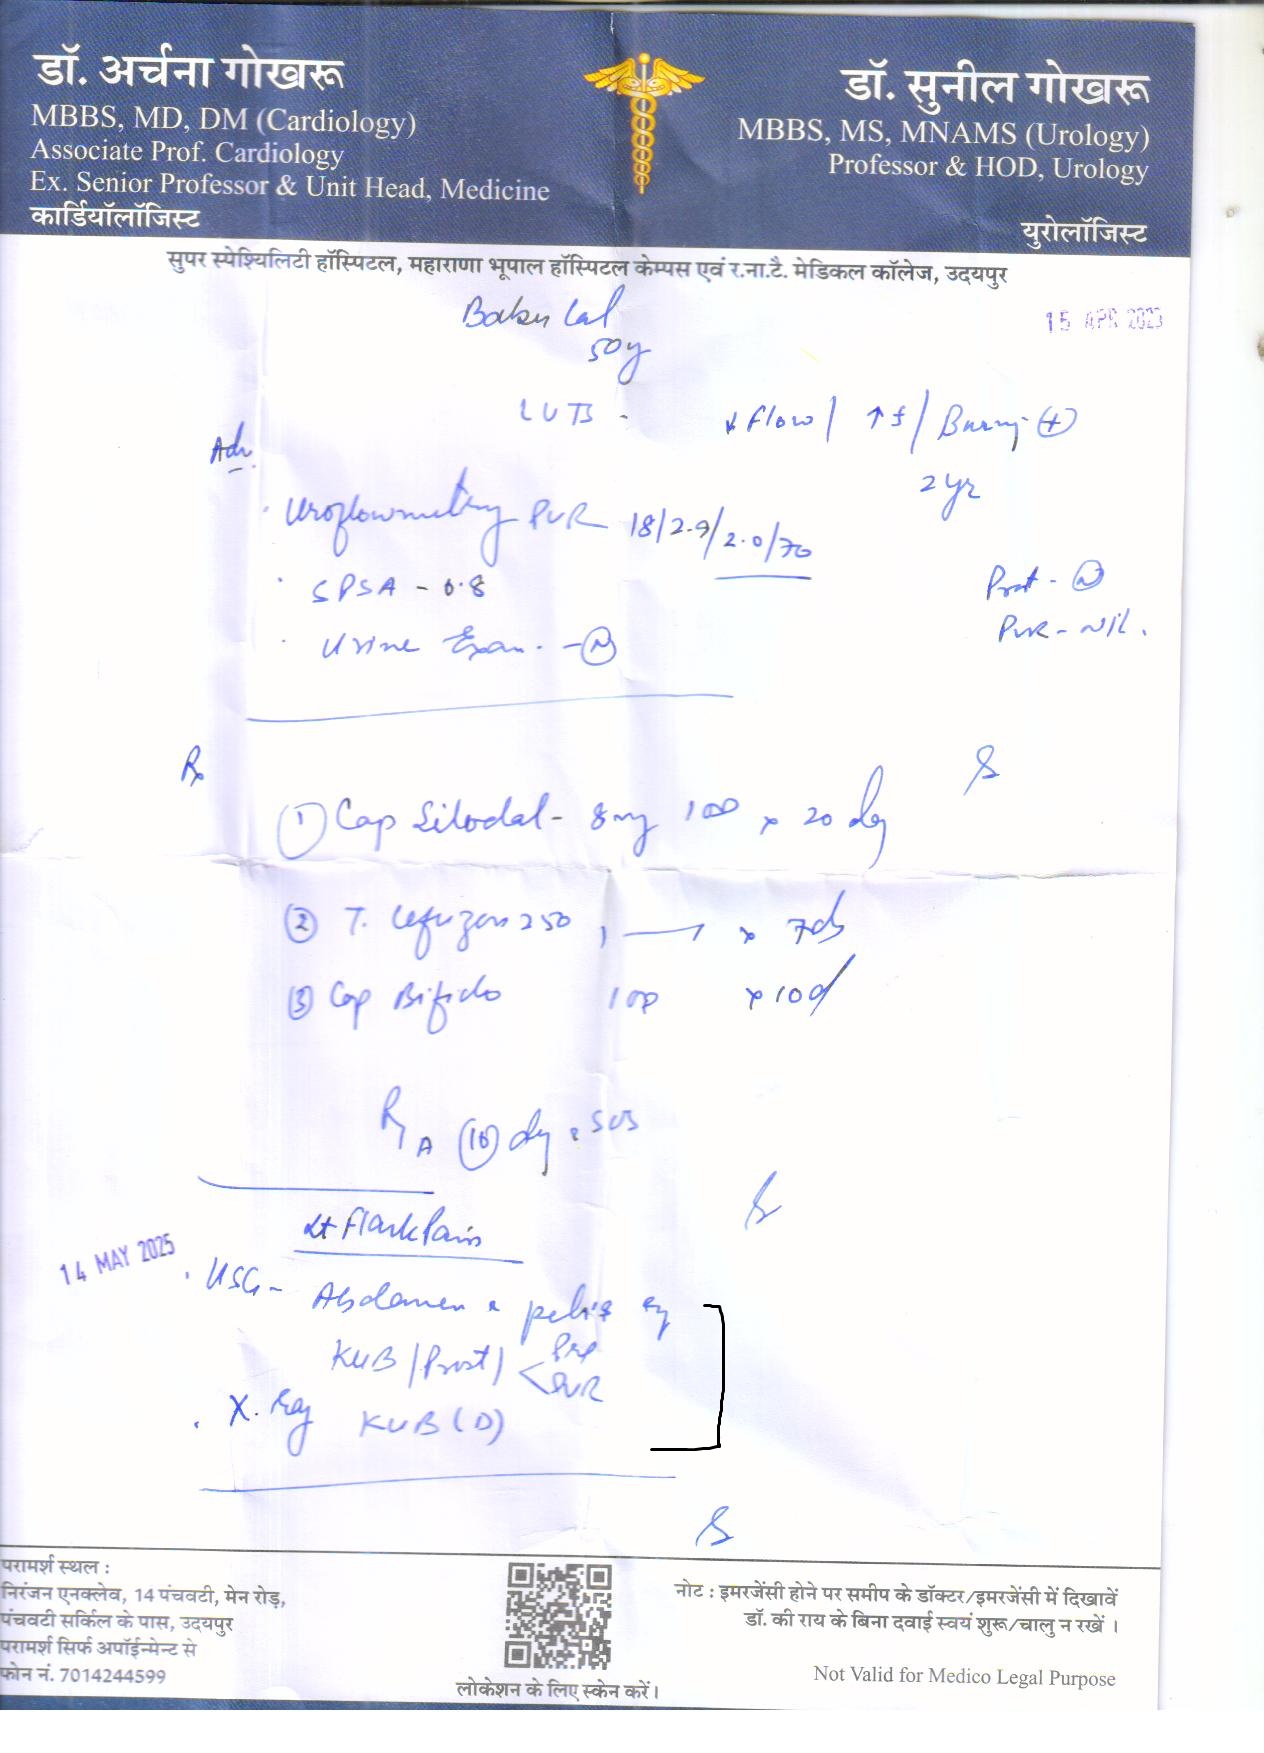 डॉ. अर्चना गोखरू
MBBS, MD, DM (Cardiology)
Associate Prof. Cardiology
Ex. Senior Professor & Unit Head, Medicine
कार्डियॉलॉजिस्ट
डॉ. सुनील गोखरू
MBBS, MS, MNAMS (Urology)
Professor & HOD, Urology
युरोलॉजिस्ट
सुपर स्पेश्यिलिटी हॉस्पिटल, महाराणा भूपाल हॉस्पिटल केम्पस एवं र.ना.टै. मेडिकल कॉलेज, उदयपुर
Babu Lal
15 APR 2025
50y
LUTS - ↓ Flow / ↑ f / Burning (+)
2 yr
Adv.
Uroflowmetry PVR 18/2.9/2.0/70
SPSA - 0.8
Urine Exam. - (N)
Prost - (N)
PVR - Nil.
Rx
(1) Cap Silodal - 8mg 1 OD x 20 day
(2) T. 250 x 7d
(3) Cap Bifido 1 OD x 10d
R A (10) day SOS
Lt Flank Pain
14 MAY 2025
USG - Abdomen & pelvis
KUB / Prost / < Pre
PVR
X. Ray KUB (D)
परामर्श स्थल :
निरंजन एनक्लेव, 14 पंचवटी, मेन रोड़,
पंचवटी सर्किल के पास, उदयपुर
परामर्श सिर्फ अपॉईन्मेन्ट से
फोन नं. 7014244599
लोकेशन के लिए स्केन करें।
नोट : इमरजेंसी होने पर समीप के डॉक्टर/इमरजेंसी में दिखावें
डॉ. की राय के बिना दवाई स्वयं शुरू/चालु न रखें ।
Not Valid for Medico Legal Purpose